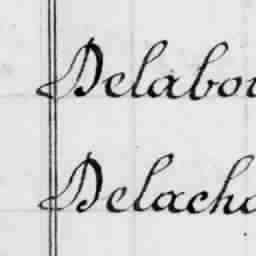 Delabou
Delacha